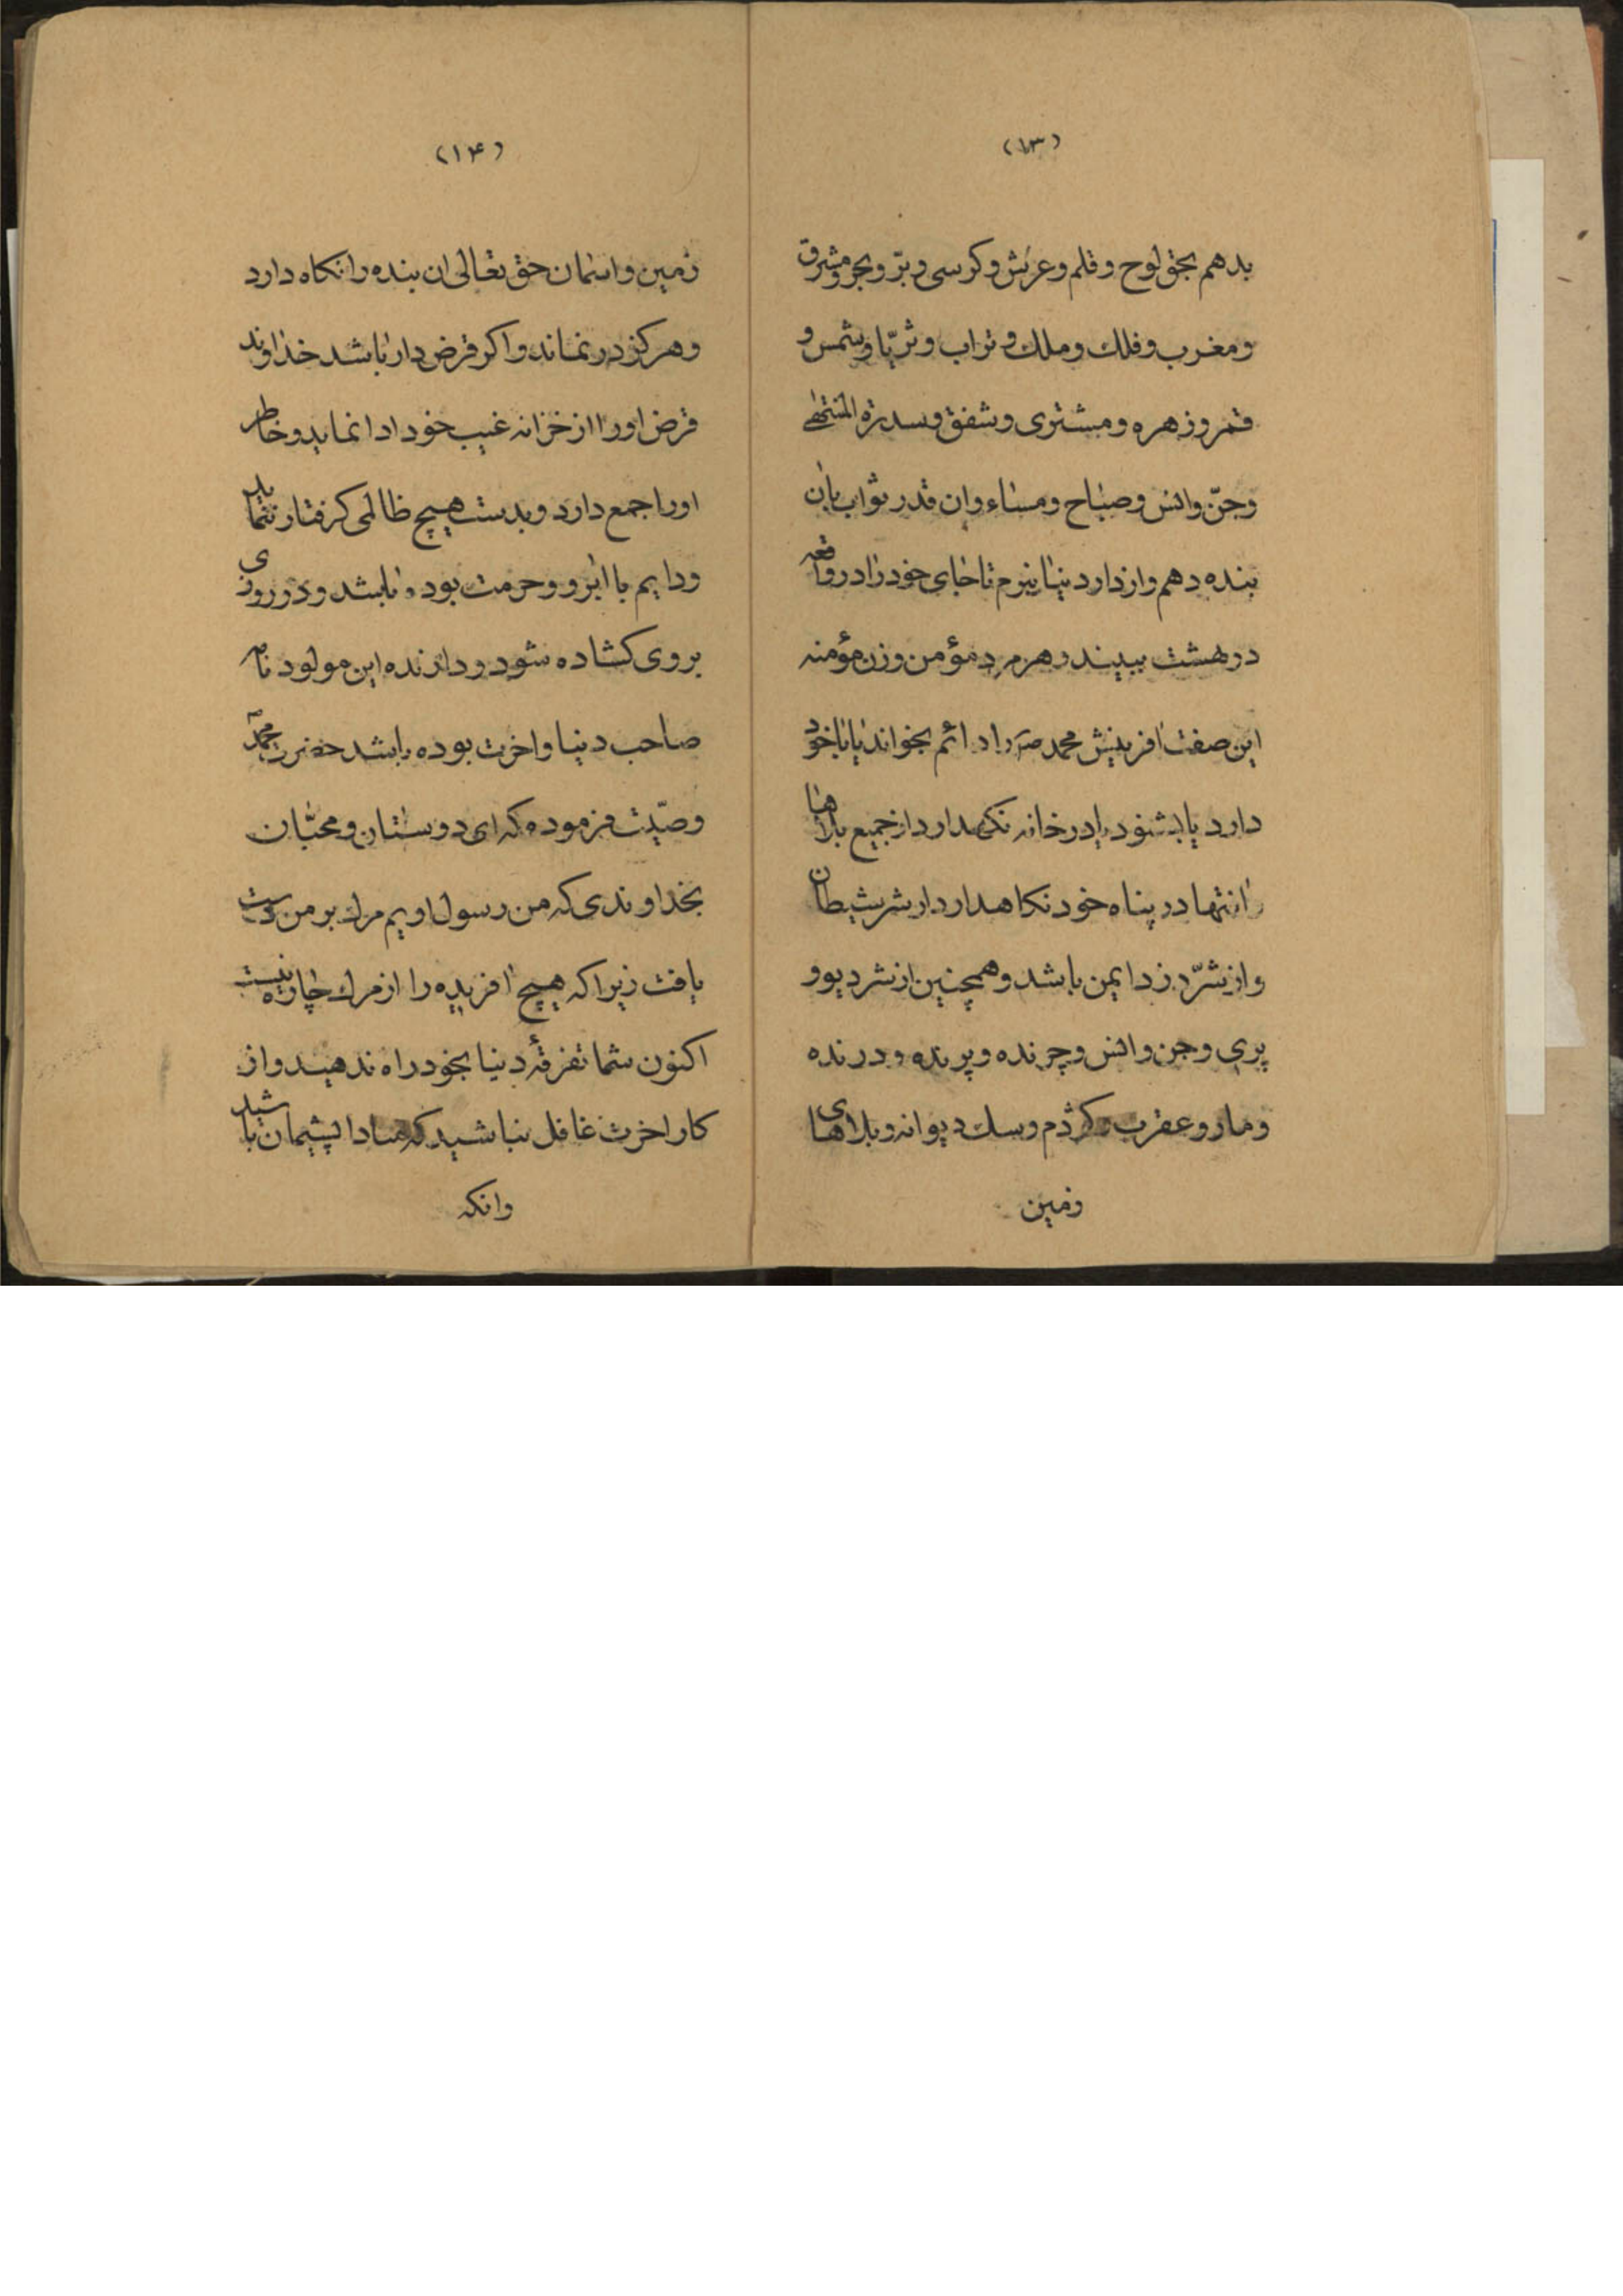 (۱۳)
بدهم بحق لوح و قلم و عرش و کرسی و برّ و بحر و مشرق
و مغرب و فلك و ملك و تراب و ثریّا و شمس و
قمر و زهره و مشتری و شفق و سدرة المنتهی
و جنّ و انس و صباح و مساء و ان قدر ثواب بان
بنده دهم و از دار دنیا نبرم تا جای خود را در واقعه
در بهشت ببیند و هر مرد مؤمن و زن مؤمنه
این صفت افرینش محمد صم را دائم بخواند یا با خود
دارد یا بشنود یا در خانه نکهدارد از جمیع بلاها
انتها در پناه خود نکاهدارد از شر شیطان
و از شرّ دزد ایمن باشد و همچنین از شر دیو و
پری و جن و انس و چرنده و پرنده و درنده
و مار و عقرب و کژدم و سك دیوانه و بلاهای
زمین
(۱۴)
زمین و اسمان حق تعالی ان بنده را نکاه دارد
و هرکز در نماند و اکر قرض دار باشد خداوند
قرض او را از خزانه غیب خود ادا نماید و خاطر
او را جمع دارد و بدست هیچ ظالمی کرفتار ننماید
و دایم با ابرو و حرمت بوده باشد و در روزی
بروی کشاده شود و دارنده این مولود نامه
صاحب دنیا و اخرت بوده باشد حضرت محمدّ
وصیّت فرموده که ای دوستان و محبّان
بخداوندی که من رسول اویم مرك بر من دست
یافت زیرا که هیچ افریده را از مرك چاره نیست
اکنون شما تفرقهٔ دنیا بخود راه ندهید و از
کار اخرت غافل نباشید که مبادا پشیمان باشید
وانکه